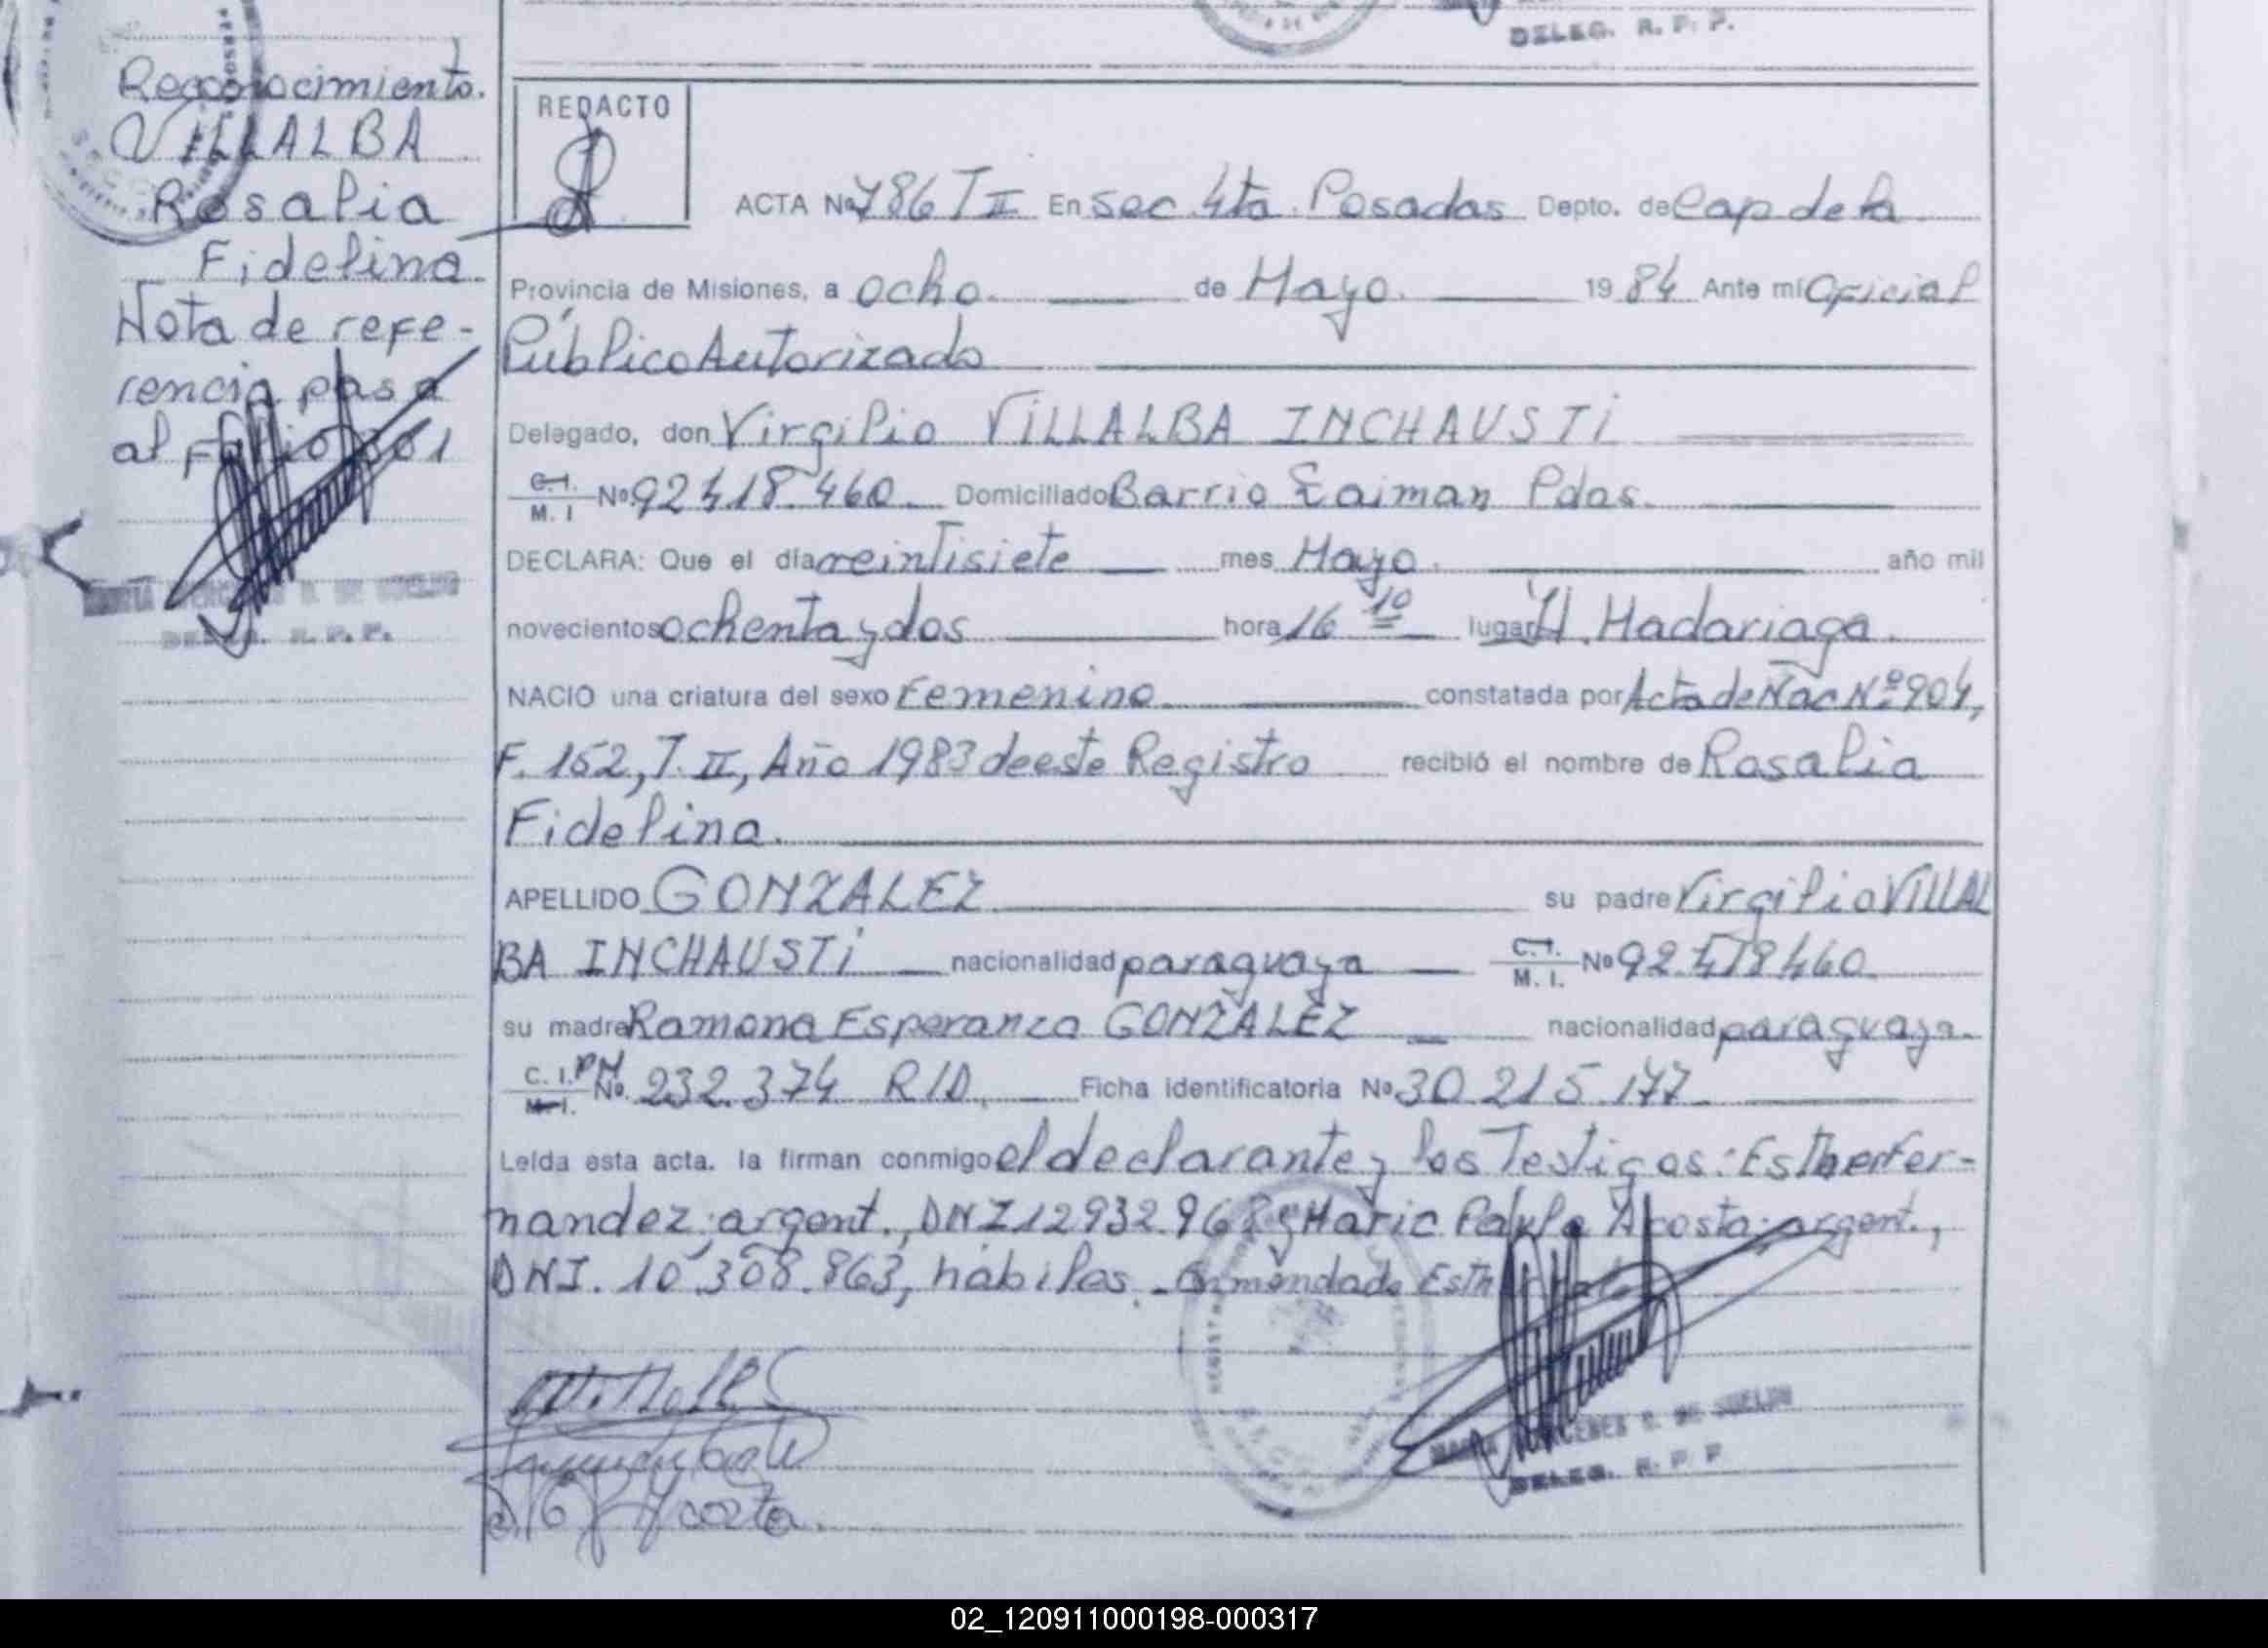 DELEG. R. P. P.
Reconocimiento.
VILLALBA
Rosalia
Fidelina
Nota de refe-
rencia pasa
al folio 301
DELEG. R. P. P.
REDACTO
ACTA Nº 786 T II En Sec. 4ta. Posadas Depto. de Cap de la
Provincia de Misiones, a ocho. de Mayo. 19 84 Ante mí Oficial
Público Autorizado
Delegado, don Virgilio VILLALBA INCHAUSTI
C.I. M. I Nº 92.418.460. Domiciliado Barrio Yaiman Pdas.
DECLARA: Que el día veintisiete mes Mayo. año mil
novecientos ochenta y dos hora 16 10 lugar H. Madariaga.
NACIO una criatura del sexo Femenino constatada por Acta de Nac Nº 904,
F. 152, T. II, Año 1983 de este Registro recibió el nombre de Rosalia
Fidelina.
APELLIDO GONZALEZ su padre Virgilio VILLAL
BA INCHAUSTI nacionalidad paraguaya C.I. M. I. Nº 92.418460
su madre Ramona Esperanza GONZALEZ nacionalidad paraguaya.
C. I. PN M.I. Nº 232.374 R/D. Ficha identificatoria Nº 30.215.177
Leída esta acta. la firman conmigo el declarante y los Testigos: Esther Fer-
nandez, argent., DNI 12932.968 y Maric Acosta, argent.,
DNI. 10.308.863, hábiles. - Enmendado Esth
Acosta.
DELEG. R. P. P.
02_120911000198-000317